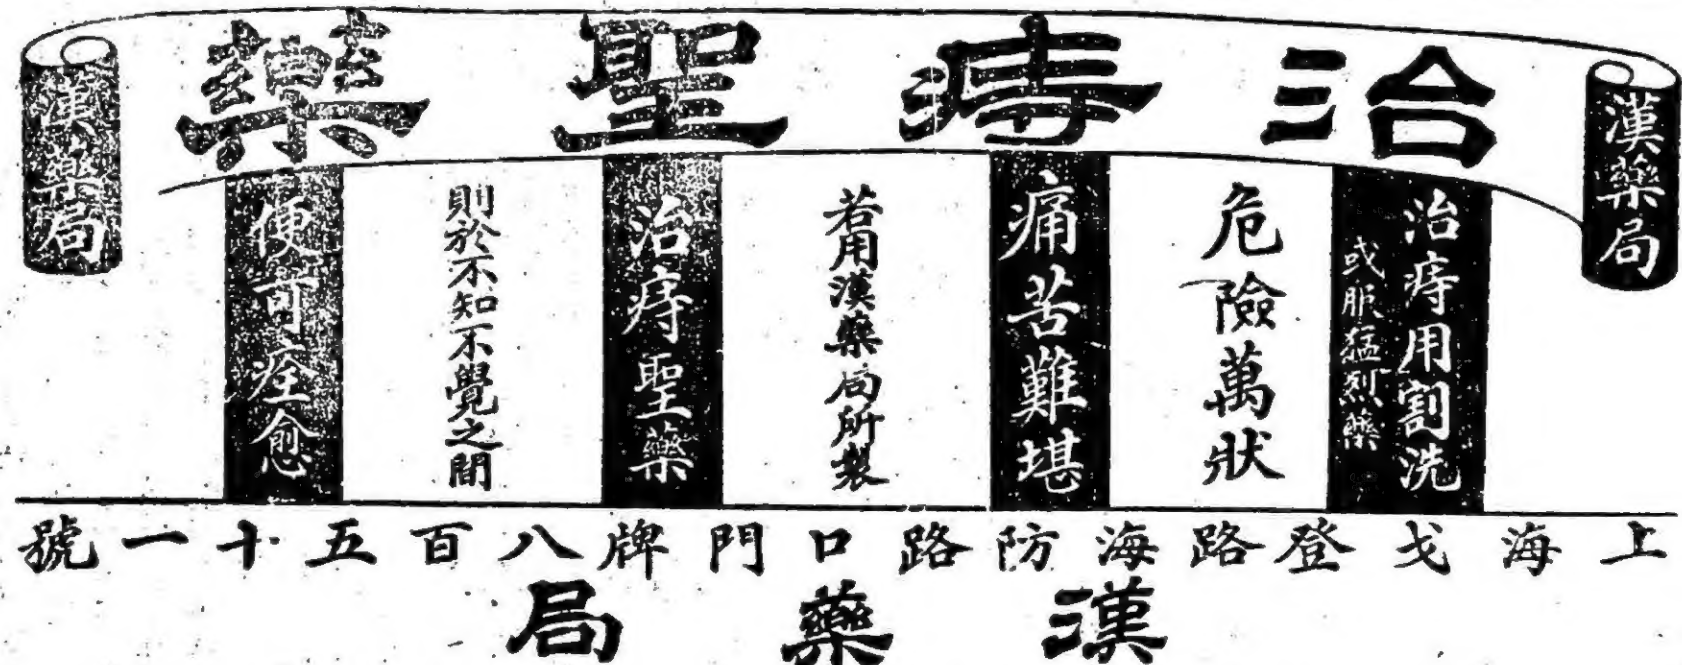 治痔聖藥
漢藥局
治痔用割洗
或服猛烈藥
危險萬狀
痛苦難堪
若用漢藥局所製
治痔聖藥
則於不知不覺之間
便可痊愈
漢藥局
上海戈登路海防路口門牌八百五十一號
漢藥局